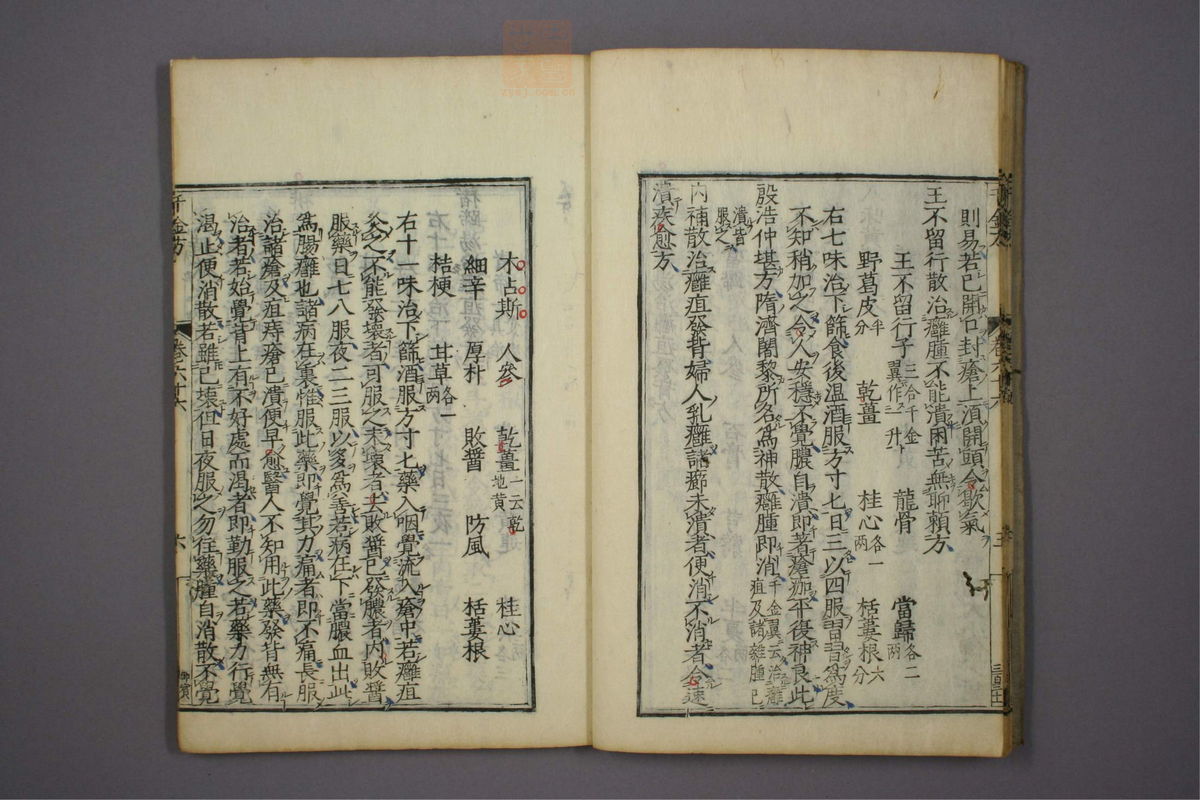 則易若已開口封瘡上須開頭令歇氣
王不留行散治癰腫不能潰困苦無聊賴方
王不留行子三合千金翼作三升 龍骨 當歸各二兩
野葛皮半分 乾薑 桂心各一兩 栝蔞根六分
右七味治下篩食後溫酒服方寸匕日三以四肢習習爲度
不知稍加之令人安穩不覺膿自潰即著瘡痂平復神良此
殷浩仲堪方隋濟闍黎所名爲神散癰腫即消千金翼云治癰疽及諸雜腫已
潰皆服之
內補散治癰疽發背婦人乳癰諸癤未潰者便消不消者令速
潰疾愈方
木占斯 人參 乾薑一云乾地黃 桂心
細辛 厚朴 敗醬 防風 栝蔞根
桔梗 甘草各一兩
右十一味治下篩酒服方寸匕藥入咽覺流入瘡中若癰疽
灸之不能發壞者可服之未壞者去敗醬已發膿者內敗醬
服藥日七八服夜二三服以多爲善若病在下當膿血出此
爲腸癰也諸病在裏惟服此藥即覺其力痛者即不痛長服
治諸瘡及疽痔瘡已潰便早愈醫人不知用此藥發背無有
治者若始覺背上有不好處而渴者即勤服之若藥力行覺
渴止便消散若雖已壞但日夜服之勿住藥腫自消散不覺
千金方 卷六十六 六